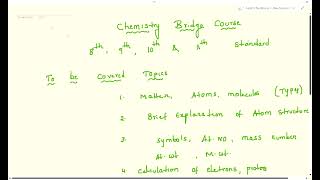 Chemistry Bridge Course
8th, 9th, 10th & 11th Standard
To be Covered Topics
1. Matter, Atoms, molecules (Type)
2. Brief Explanation of Atom Structure
3. symbols, At. NO, mass number
At. wt, M. wt.
4. calculation of eletrons, proton